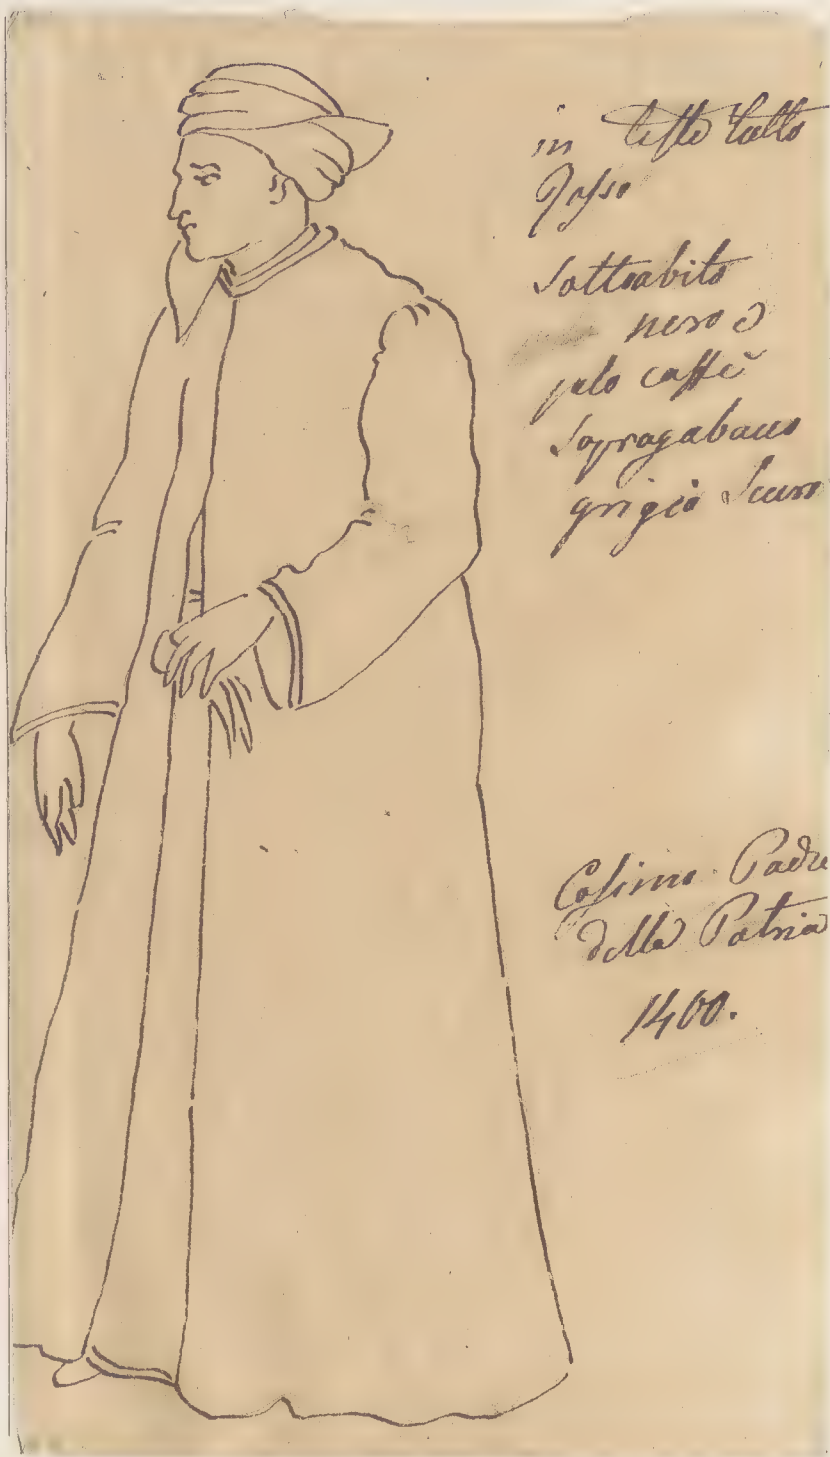 in testa tutto
Rosso
Sottoabito
nero e
pelo caffè
Sopragabano
grigio Scuro
Cosimo Padre
della Patria
1400.